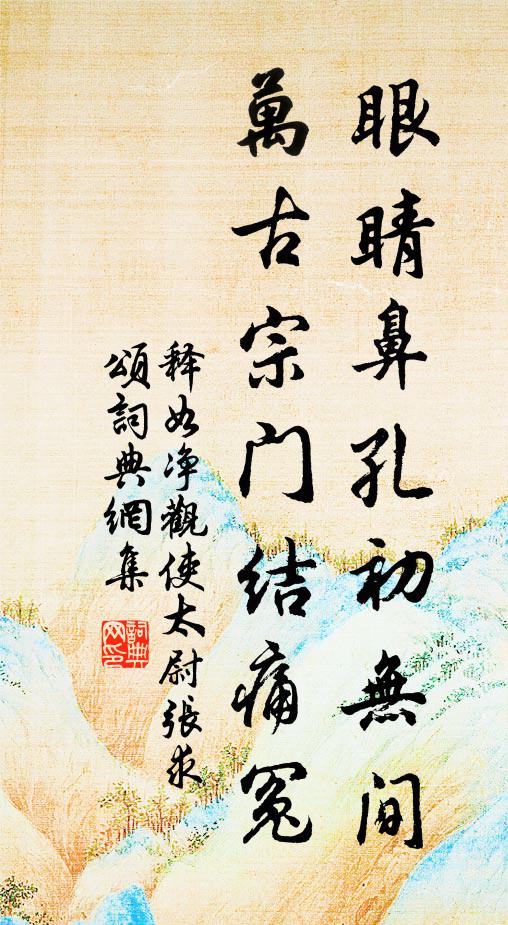 眼睛鼻孔初無間
萬古宗門結痛冤
释如净觀使太尉張求
頌詞典網集
詞典网印